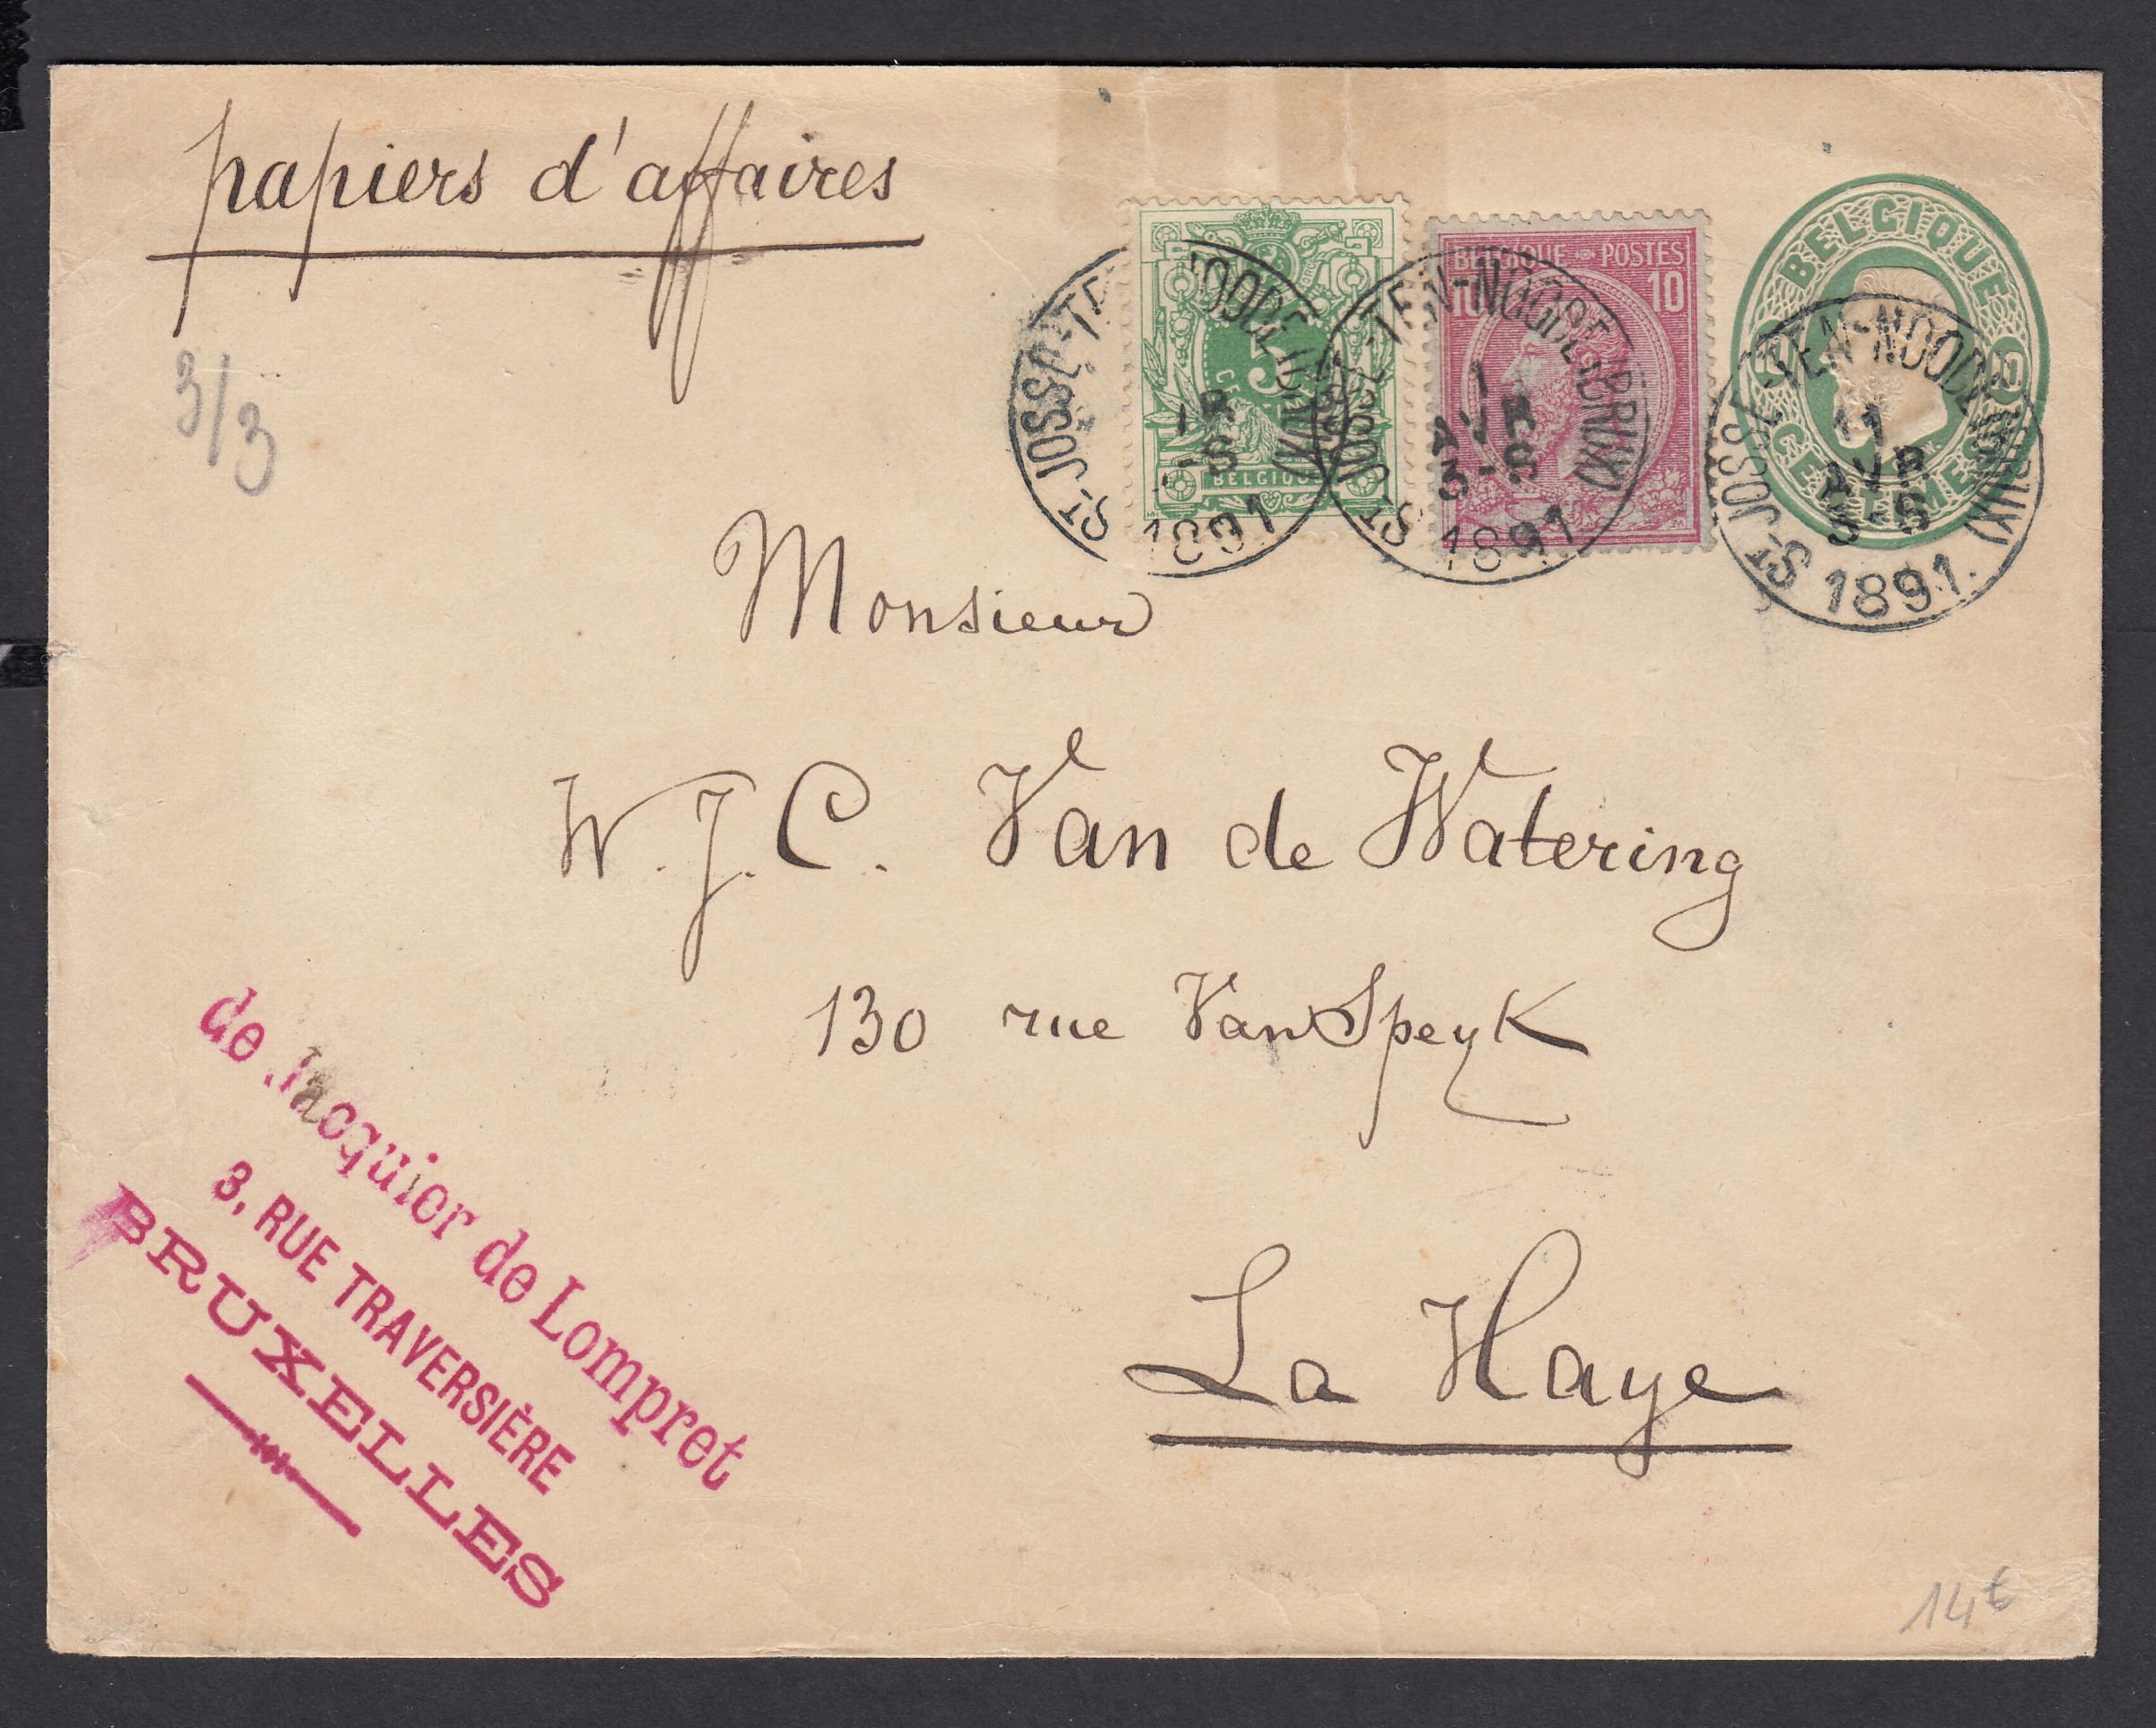 papiers d'affaires
3/3
5
BELGIQUE
BELGIQUE POSTES
10 10
BELGIQUE
10 10
CENTIMES
ST-JOSSE-TEN-NOODE (BRUX)
1891
ST-JOSSE-TEN-NOODE (BRUX)
1 AVR 3-S
1891
ST-JOSSE-TEN-NOODE (BRUX)
11
AVR
3-S
1891
Monsieur
W. J. C. Van de Watering
130 rue Van Speyk
La Haye
de Jacquier de Lompret
3, RUE TRAVERSIÈRE
BRUXELLES
14€